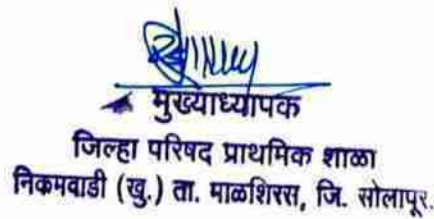 मुख्याध्यापक
जिल्हा परिषद प्राथमिक शाळा
निकमवाडी (खु.) ता. माळशिरस, जि. सोलापूर.